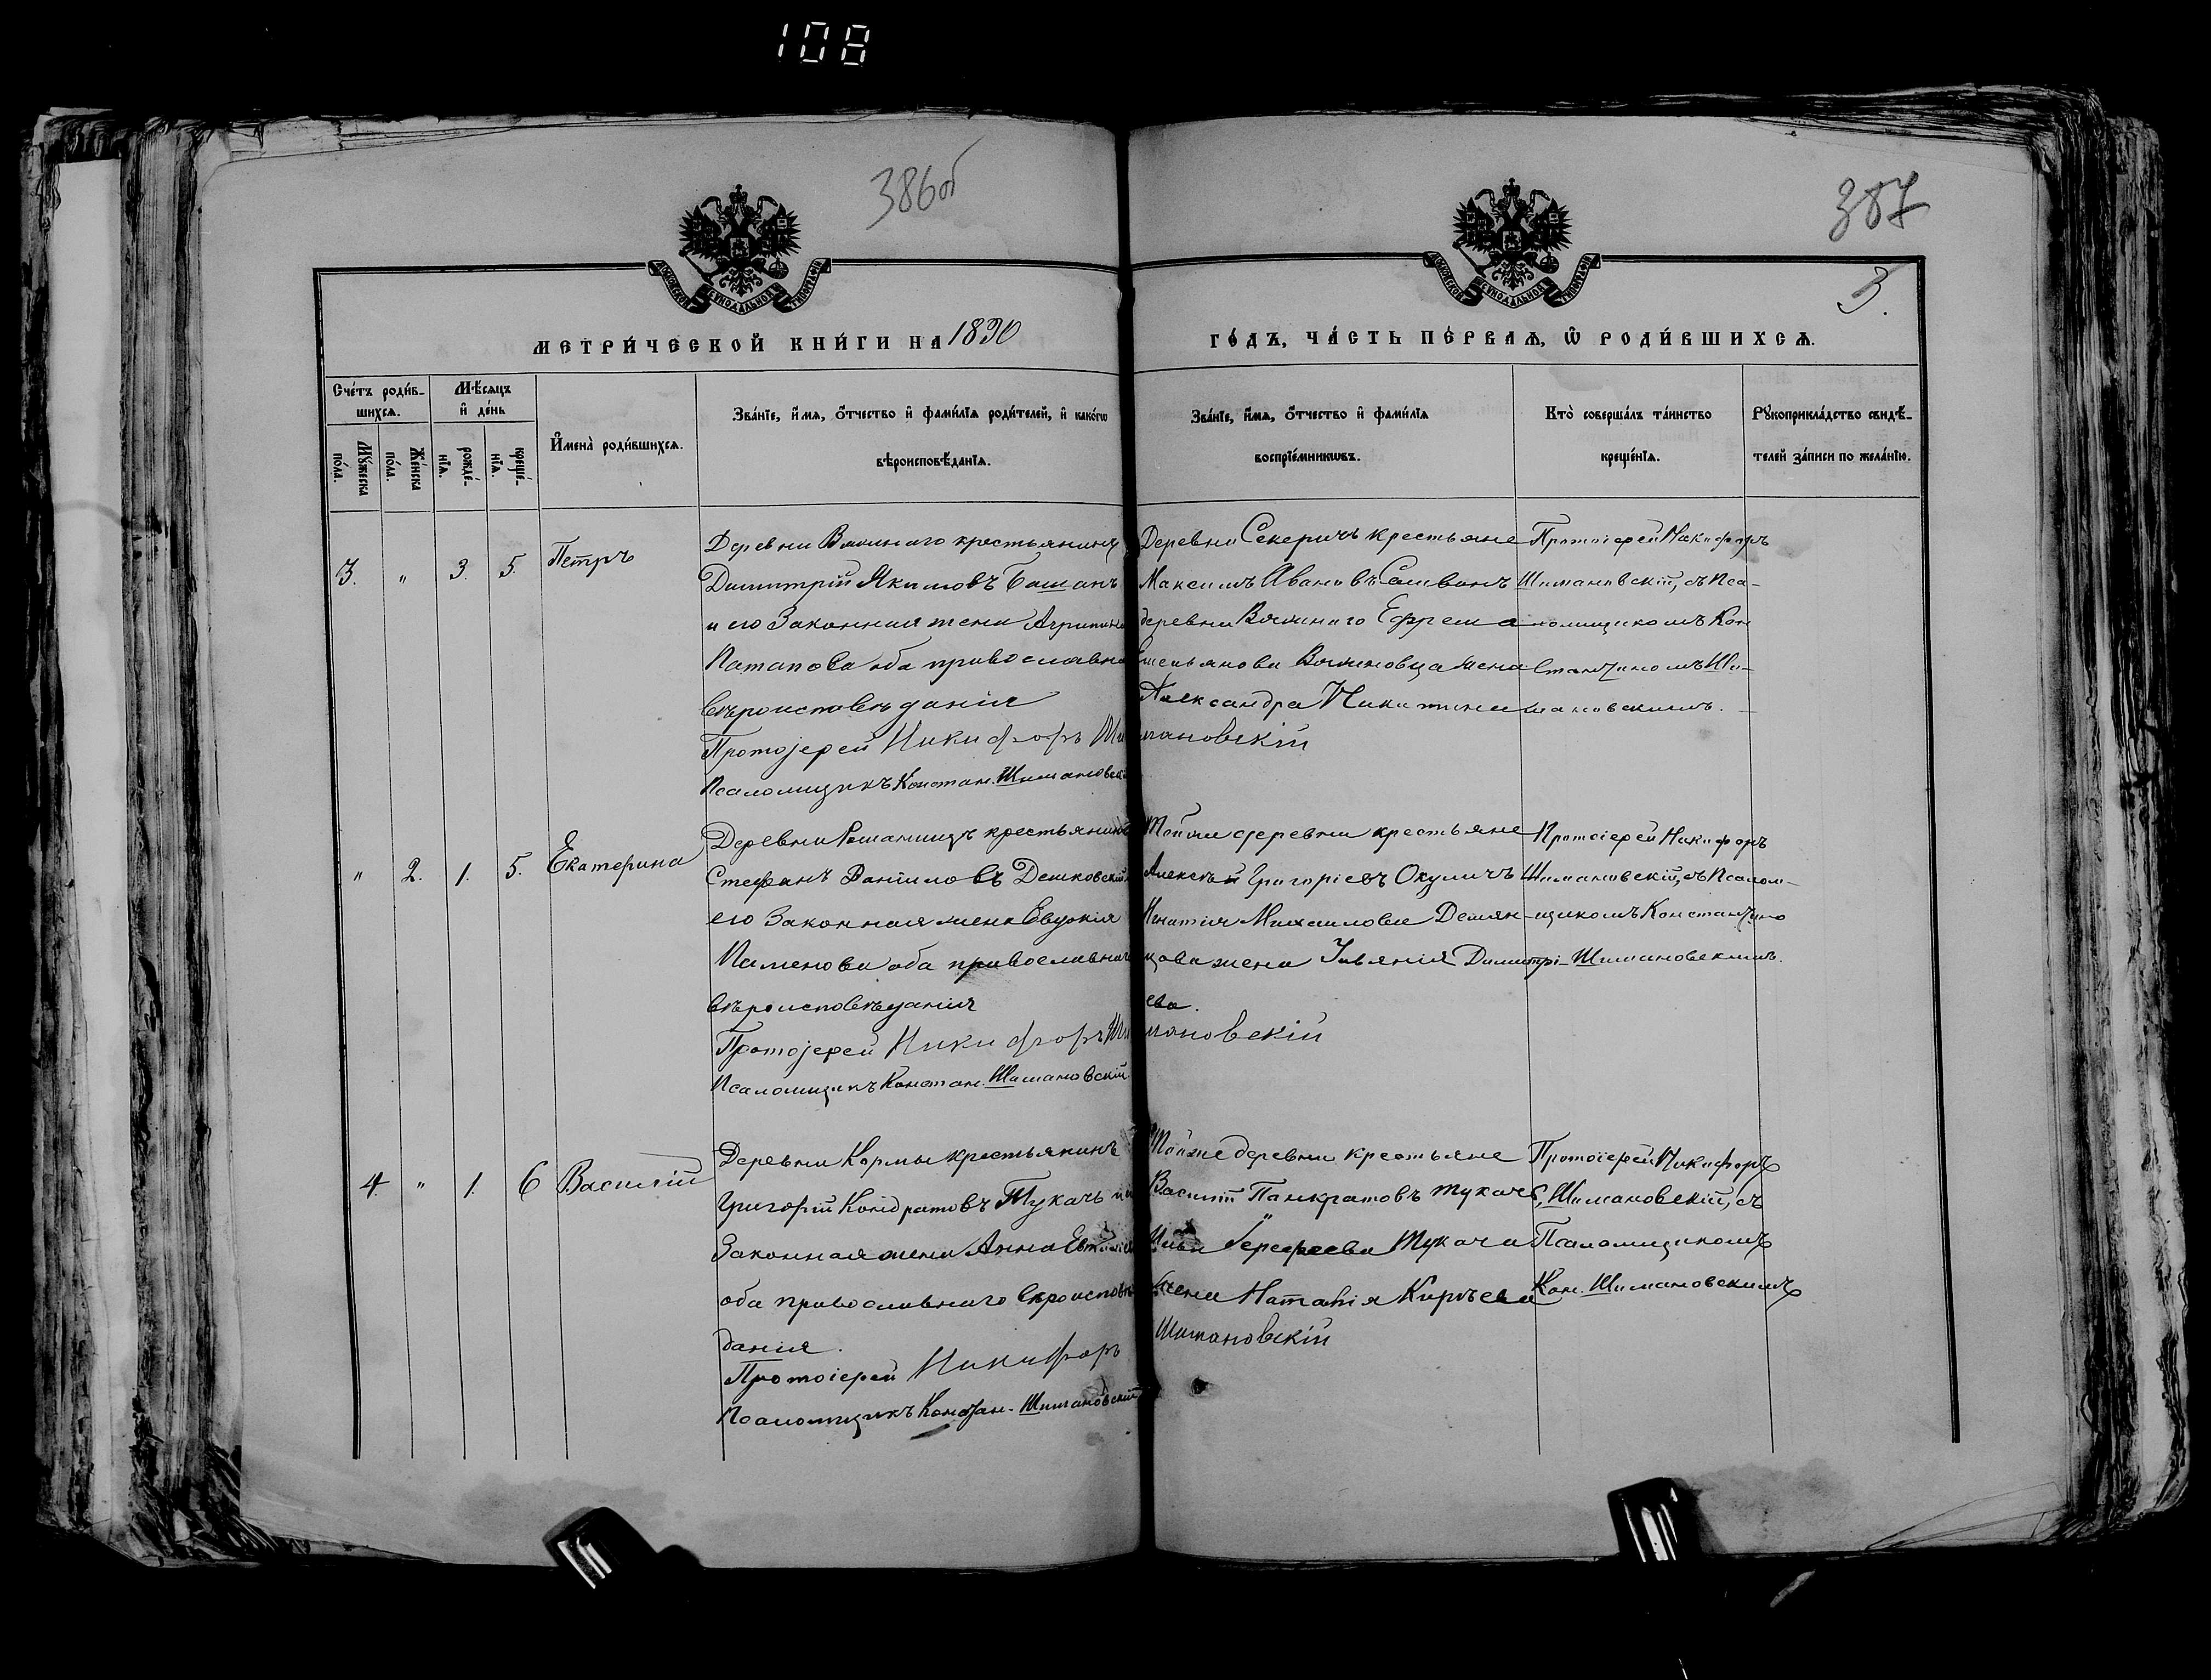 108
386об
387
3.
МОСКОВСКОЙ СѴНОДАЛЬНОЙ ТИПОГРАФІИ
МОСКОВСКОЙ СѴНОДАЛЬНОЙ ТИПОГРАФІИ
МЕТРИ́ЧЕСКОЙ КНИ́ГИ НА 1890
ГО́ДЪ, ЧА́СТЬ ПЕ́РВАѦ, Ѡ҆ РОДИ́ВШИХСѦ.
Сче́тъ роди́в-
шихсѧ.
Мꙋ́жеска по́ла.
Же́нска по́ла.
Мѣ́сѧцъ
и҆ де́нь
рожде́-
нїѧ.
креще́-
нїѧ.
И҆мена̀ роди́вшихсѧ.
Зва́нїе, и҆́мѧ, ѻ҆́тчество и҆ фами́лїѧ роди́телей, и҆ како́гѡ
вѣроисповѣ́данїѧ.
Зва́нїе, и҆́мѧ, ѻ҆́тчество и҆ фами́лїѧ
воспрїе́мникѡвъ.
Кто̀ соверша́лъ та́инство
креще́нїѧ.
Рꙋкоприкла́дство свидѣ́-
телей за́писи по жела́нїю.
3. " 3. 5. Петръ
Деревни крестьянинъ
Димитрій Якимовъ Башанъ
и его Законная жена Агрипина
Патапова оба православна
вѣроисповѣданія
Протоіерей Никифоръ Шимановскій
Псаломщикъ Констан. Шимановскій
Деревни Секеричъ крестьяне
Максимъ Ивановъ
деревни Ефрема
Емельянова жена
Александра Никитина
Протоіерей Никифоръ
Шимановскій, съ Пса-
ломщикомъ Кон
стантиномъ Ши-
мановскимъ.
" 2. 1. 5. Екатерина
Деревни крестьянинъ
Стефанъ Даніиловъ Дешковскій
его Законная жена Евдокія
Пименова оба православнаго
вѣроисповѣданія
Протоіерей Никифоръ Шимановскій
Псаломщикъ Констан. Шимановскій
Той же деревни крестьяне
Алексѣй Григоріевъ Окуличъ
Игнатія Михаилова Демян-
цова жена Ульянія Димитрі-
ева.
Протоіерей Никифоръ
Шимановскій, съ Псалом-
щикомъ Константино
Шимановскимъ.
4. " 1. 6 Василій
Деревни Кормы крестьянинъ
Григорій Кондратовъ Тукачъ
Законная жена Анна
оба православнаго вѣроисповѣ
данія.
Протоіерей Никифоръ Шимановскій
Псаломщикъ Констан. Шимановскій
Той же деревни крестьяне
Василій Панкратовъ Тукачъ,
Ильи Тукача
жена Наталія Кирѣева
Протоіерей Никифоръ
Шимановскій, съ
Псаломщикомъ
Кон. Шимановскимъ